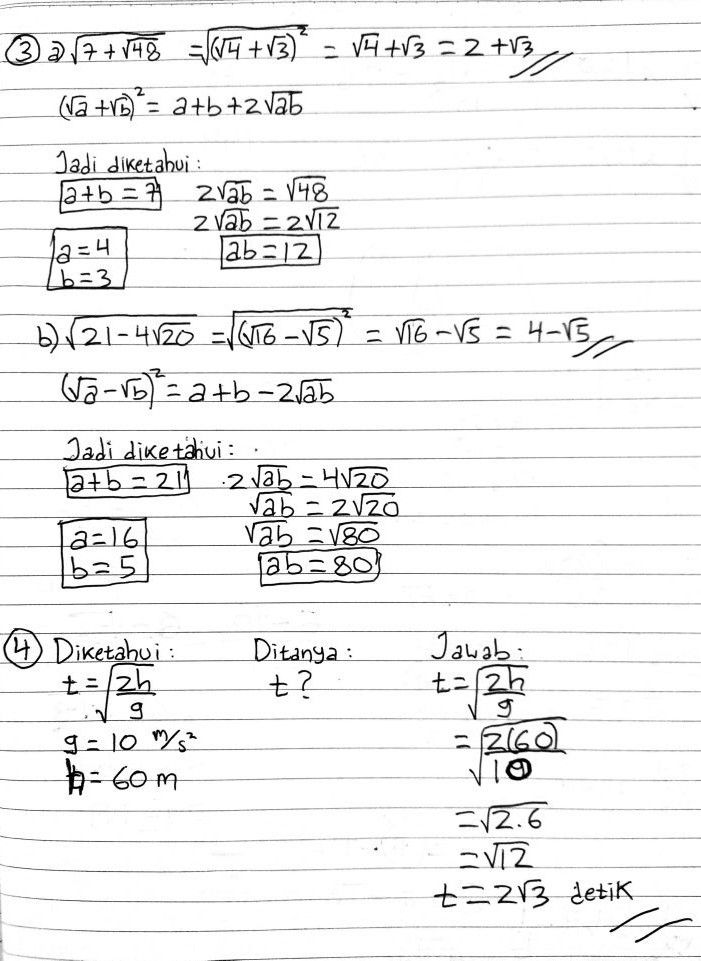 ③ a) √(7+√48) = √((√4+√3)²) = √4+√3 = 2+√3
(√a+√b)² = a+b+2√ab
Jadi diketahui:
a+b=7 2√ab = √48
2√ab = 2√12
a=4 ab=12
b=3
b) √(21-4√20) = √((√16-√5)²) = √16-√5 = 4-√5
(√a-√b)² = a+b-2√ab
Jadi diketahui:
a+b=21 2√ab=4√20
√ab=2√20
a=16 √ab=√80
b=5 ab=80
④ Diketahui: Ditanya: Jawab:
t=√(2h/g) t? t=√(2h/g)
g=10 m/s² =√(2(60)/10)
h=60 m
=√2.6
=√12
t=2√3 detik